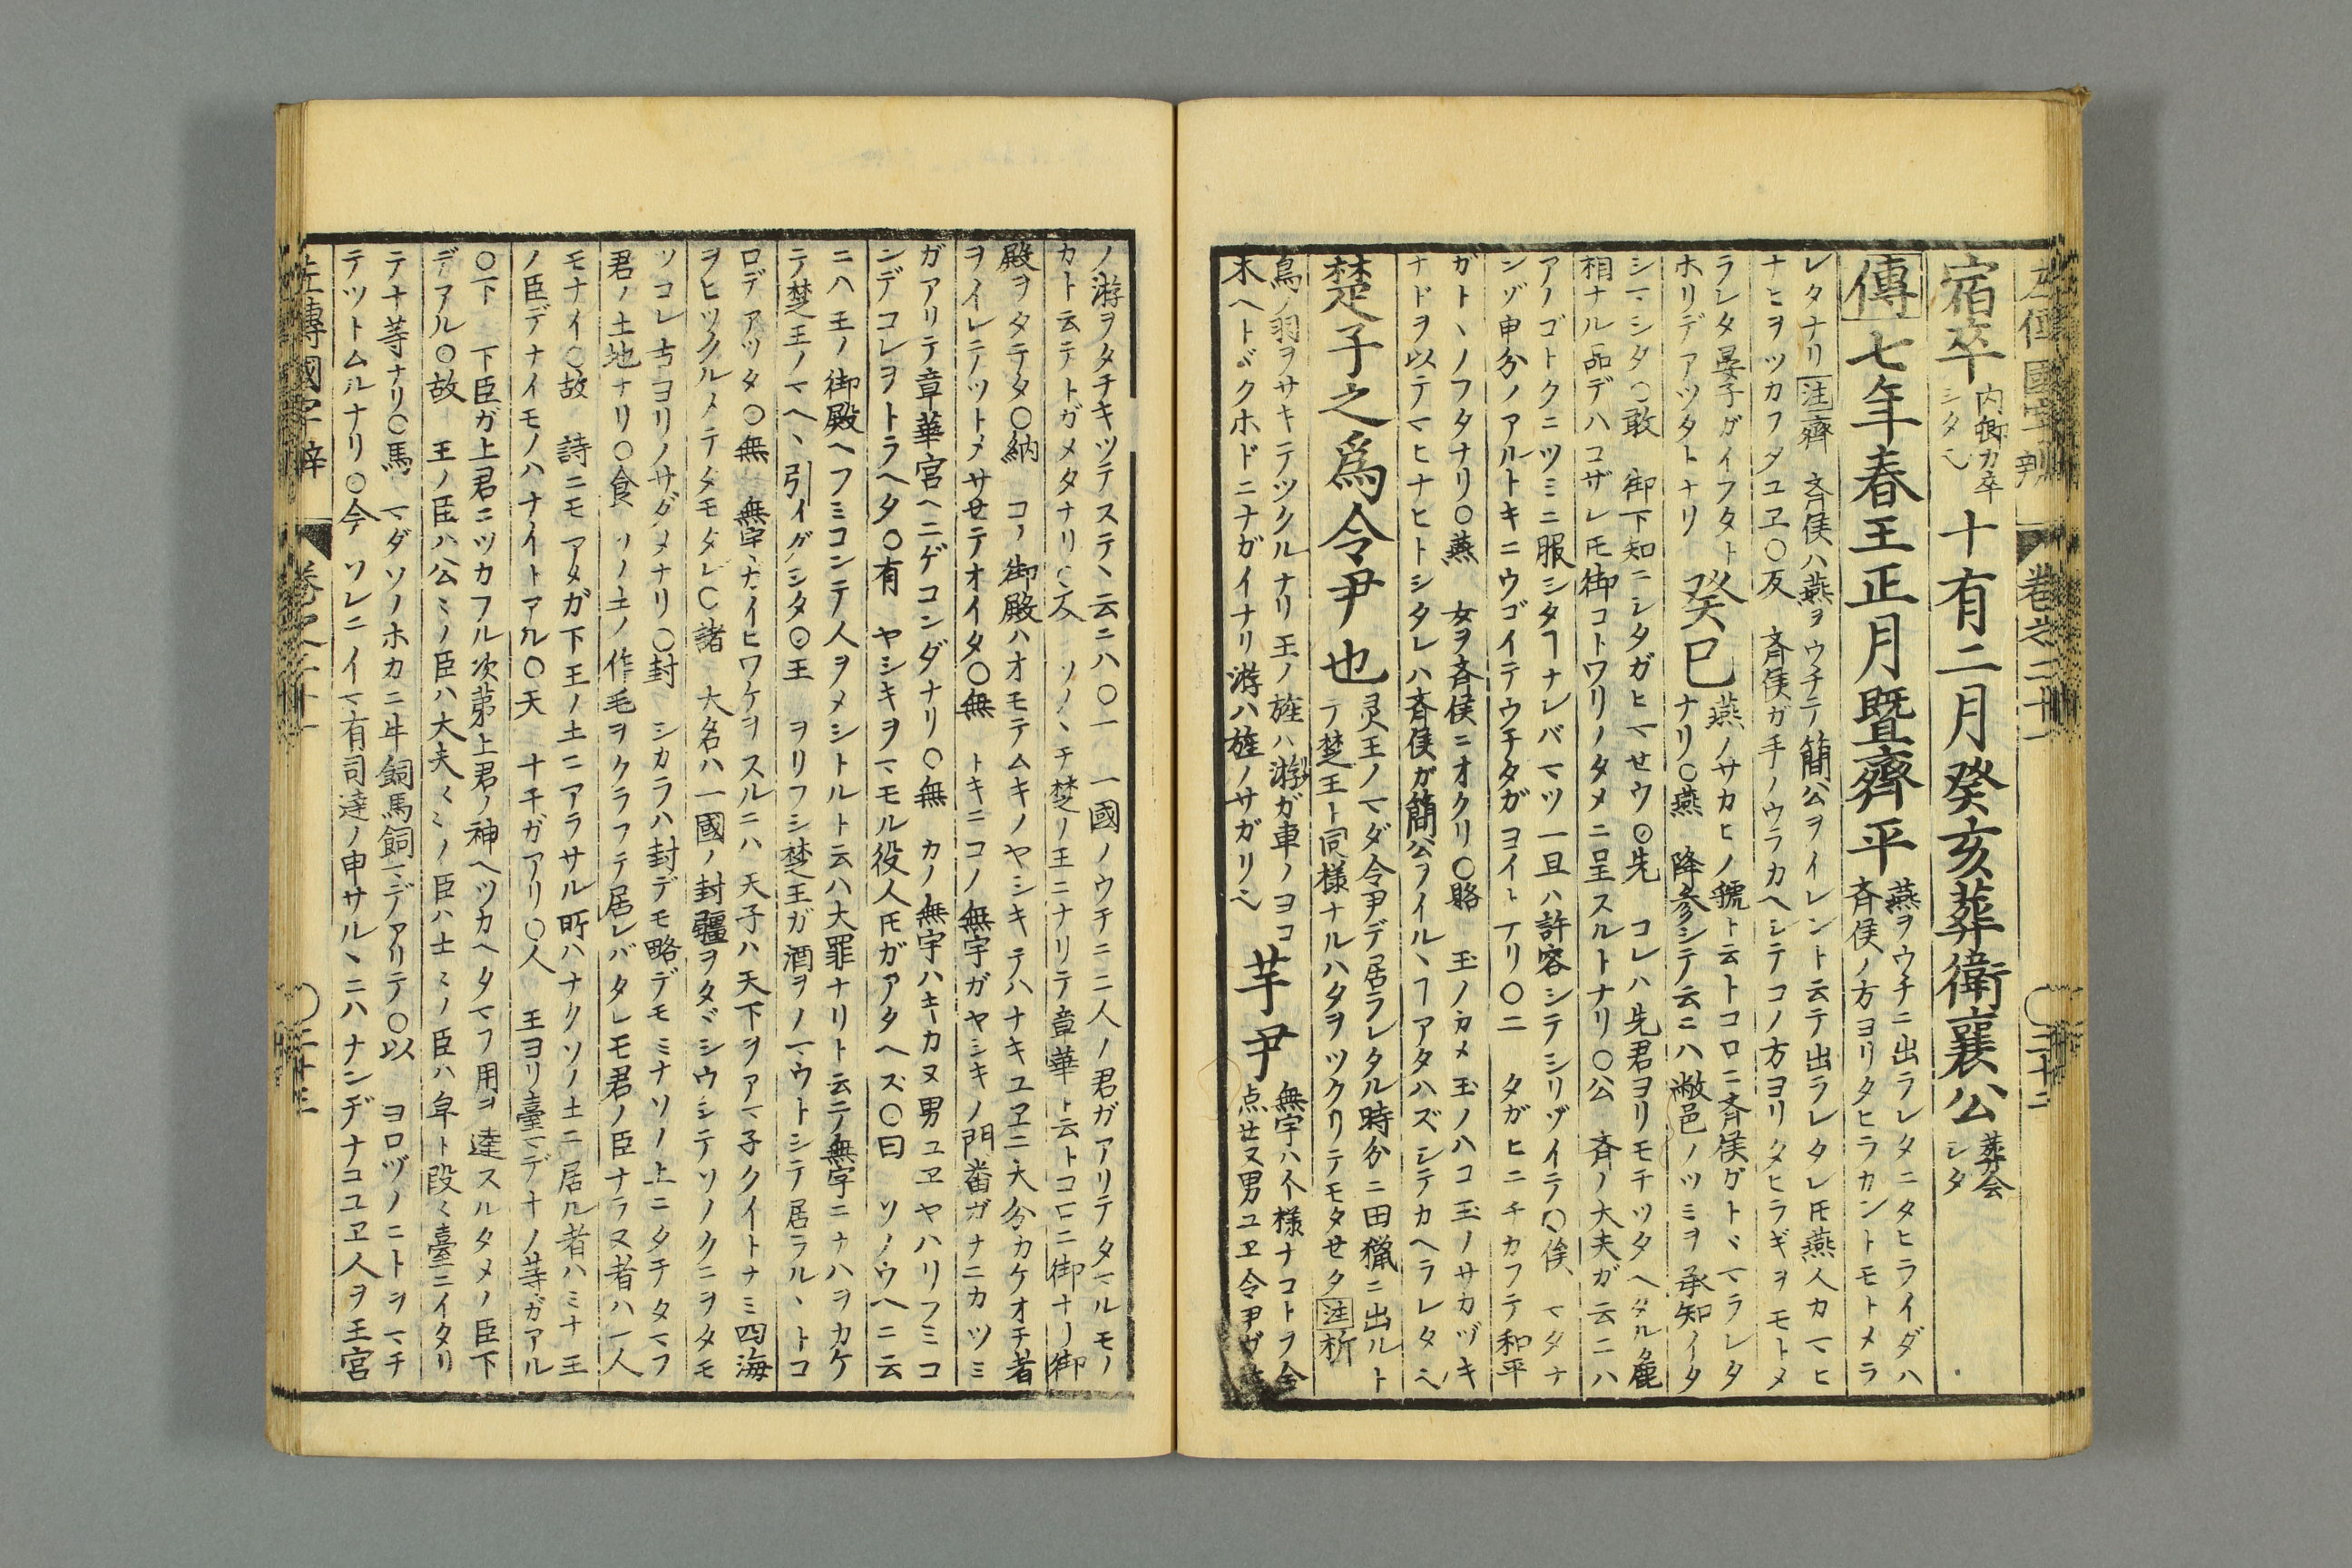 左傳國字辨 卷之二十一 〇二十二
宿卒 内卿カ卒シタ也 十有二月癸亥葬衛襄公 葬会シタ
傳 七年春王正月暨齊平 燕ヲウチニ出ラレタニタヒライダハ
斉侯ノ方ヨリタヒラカントモトメラ
レタナリ 注 齊 斉侯ハ燕ヲウチテ簡公ヲイレント云テ出ラレタレ𪜈燕人カマヒ
ナヒヲツカフタユヱ〇反 斉侯ガ手ノウラカヘシテコノ方ヨリタヒラギヲモトメ
ラレタ晏子ガイフタトホリデアツタトナリ 癸巳 燕ノサカヒノ虢ト云トコロニ斉侯ガトヾマラレタ
ナリ〇燕 降参シテ云ニハ敝邑ノツミヲ承知イタ
シマシタ〇敢 御下知ニシタガヒマせウ〇先 コレハ先君ヨリモチツタヘタル麁
相ナル品デハコザレ𪜈御コトワリノタメニ呈スルトナリ〇公 斉ノ大夫ガ云ニハ
アノゴトクニツミニ服シタヿナレバマツ一旦ハ許容シテシリゾイテ〇俟、 マタナ
ンゾ申分ノアルトキニウゴイテウチタガヨイトナリ〇二 タガヒニチカフテ和平
ガトヽノフタナリ〇燕 女ヲ斉侯ニオクリ〇賂 玉ノカメ玉ノハコ玉ノサカヅキ
ナドヲ以テマヒナヒトシタレハ斉侯ガ簡公ヲイルヽヿアタハズシテカヘラレタ也
楚子之爲令尹也 灵王ノマダ令尹デ居ラレタル時分ニ田猟ニ出ルト
テ楚王ト同様ナルハタヲツクリテモタせタ 注 析
鳥ノ羽ヲサキテツクルナリ王ノ旌ハ游ガ車ノヨコ
木ヘトヾクホドニナガイナリ游ハ旌ノサガリ也 芋尹 無宇ハ人様ナコトヲ合
点せヌ男ユヱ令尹ヴ
ノ游ヲタチキツテステヽ云ニハ〇一 一國ノウチニ二人ノ君ガアリテタマルモノ
カト云テトガメタナリ〇及 ソノヽチ楚ノ王ニナリテ章華ト云トコロニ御ナリ御
殿ヲタテタ〇納 コノ御殿ハオモテムキノヤシキテハナキユヱニ大分カケオチ者
ヲイレテツトメサせテオイタ〇無 トキニコノ無宇ガヤシキノ門番ガナニカツミ
ガアリテ章華宮ヘニゲコンダナリ〇無 カノ無宇ハキカヌ男ユヱヤハリフミコ
ンデコレヲトラヘタ〇有 ヤシキヲマモル役人𪜈ガアタヘズ〇曰 ソノウヘニ云
ニハ王ノ御殿ヘフミコンテ人ヲメシトルト云ハ大罪ナリト云テ無宇ニナハヲカケ
テ楚王ノマヘヽ引イダシタ〇王 ヲリフシ楚王ガ酒ヲノマウトシテ居ラルヽトコ
ロデアツタ〇無 無宇ガイヒワケヲスルニハ天子ハ天下ヲアマ子クイトナミ四海
ヲヒツクルメテタモタレ〇諸 大名ハ一國ノ封疆ヲタヾシウシテソノクニヲタモ
ツコレ古ヨリノサダメナリ〇封 シカラハ封デモ略デモミナソノ上ニタチタマフ
君ノ土地ナリ〇食 ソノ土ノ作毛ヲクラフテ居レバタレモ君ノ臣ナラヌ者ハ一人
モナイ〇故 詩ニモアメガ下王ノ土ニアラサル所ハナクソノ土ニ居ル者ハミナ王
ノ臣デナイモノハナイトアル〇天 十干ガアリ〇人 王ヨリ臺マデ十ノ等ガアル
〇下 下臣ガ上君ニツカフル次第上君ノ神ヘツカヘタマフ用ヲ達スルタメノ臣下
デアル〇故 王ノ臣ハ公〻ノ臣ハ大夫〻〻ノ臣ハ士〻ノ臣ハ皁ト段〻臺ニイタリ
テ十等ナリ〇馬 マダソノホカニ牛飼馬飼マデアリテ〇以 ヨロヅノコトヲマチ
テツトムルナリ〇今 ソレニイマ有司達ノ申サルヽニハナンヂナコユヱ人ヲ王宮
左傳國字辨 卷之二十一 〇二十三